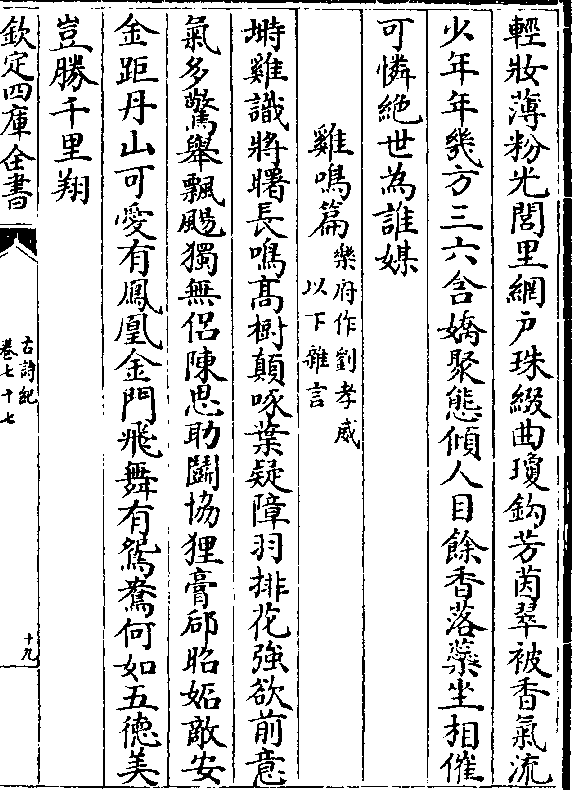 輕妝薄粉光閭里網戶珠綴曲瓊鈎芳茵翠被香氣流
少年年幾方三六含嬌聚態傾人目餘香落蘂坐相催
可憐絶世為誰媒
雞鳴篇樂府作劉孝威以下雜言
塒雞識將曙長鳴髙樹顛啄葉疑障羽排花強欲前意
氣多驚舉飄颺獨無侣陳思助鬭協狸膏郈昭妬敵安
金距丹山可愛有鳳凰金門飛舞有鴛鴦何如五徳美
豈勝千里翔
欽定四庫全書
古詩紀
卷七十七
十九